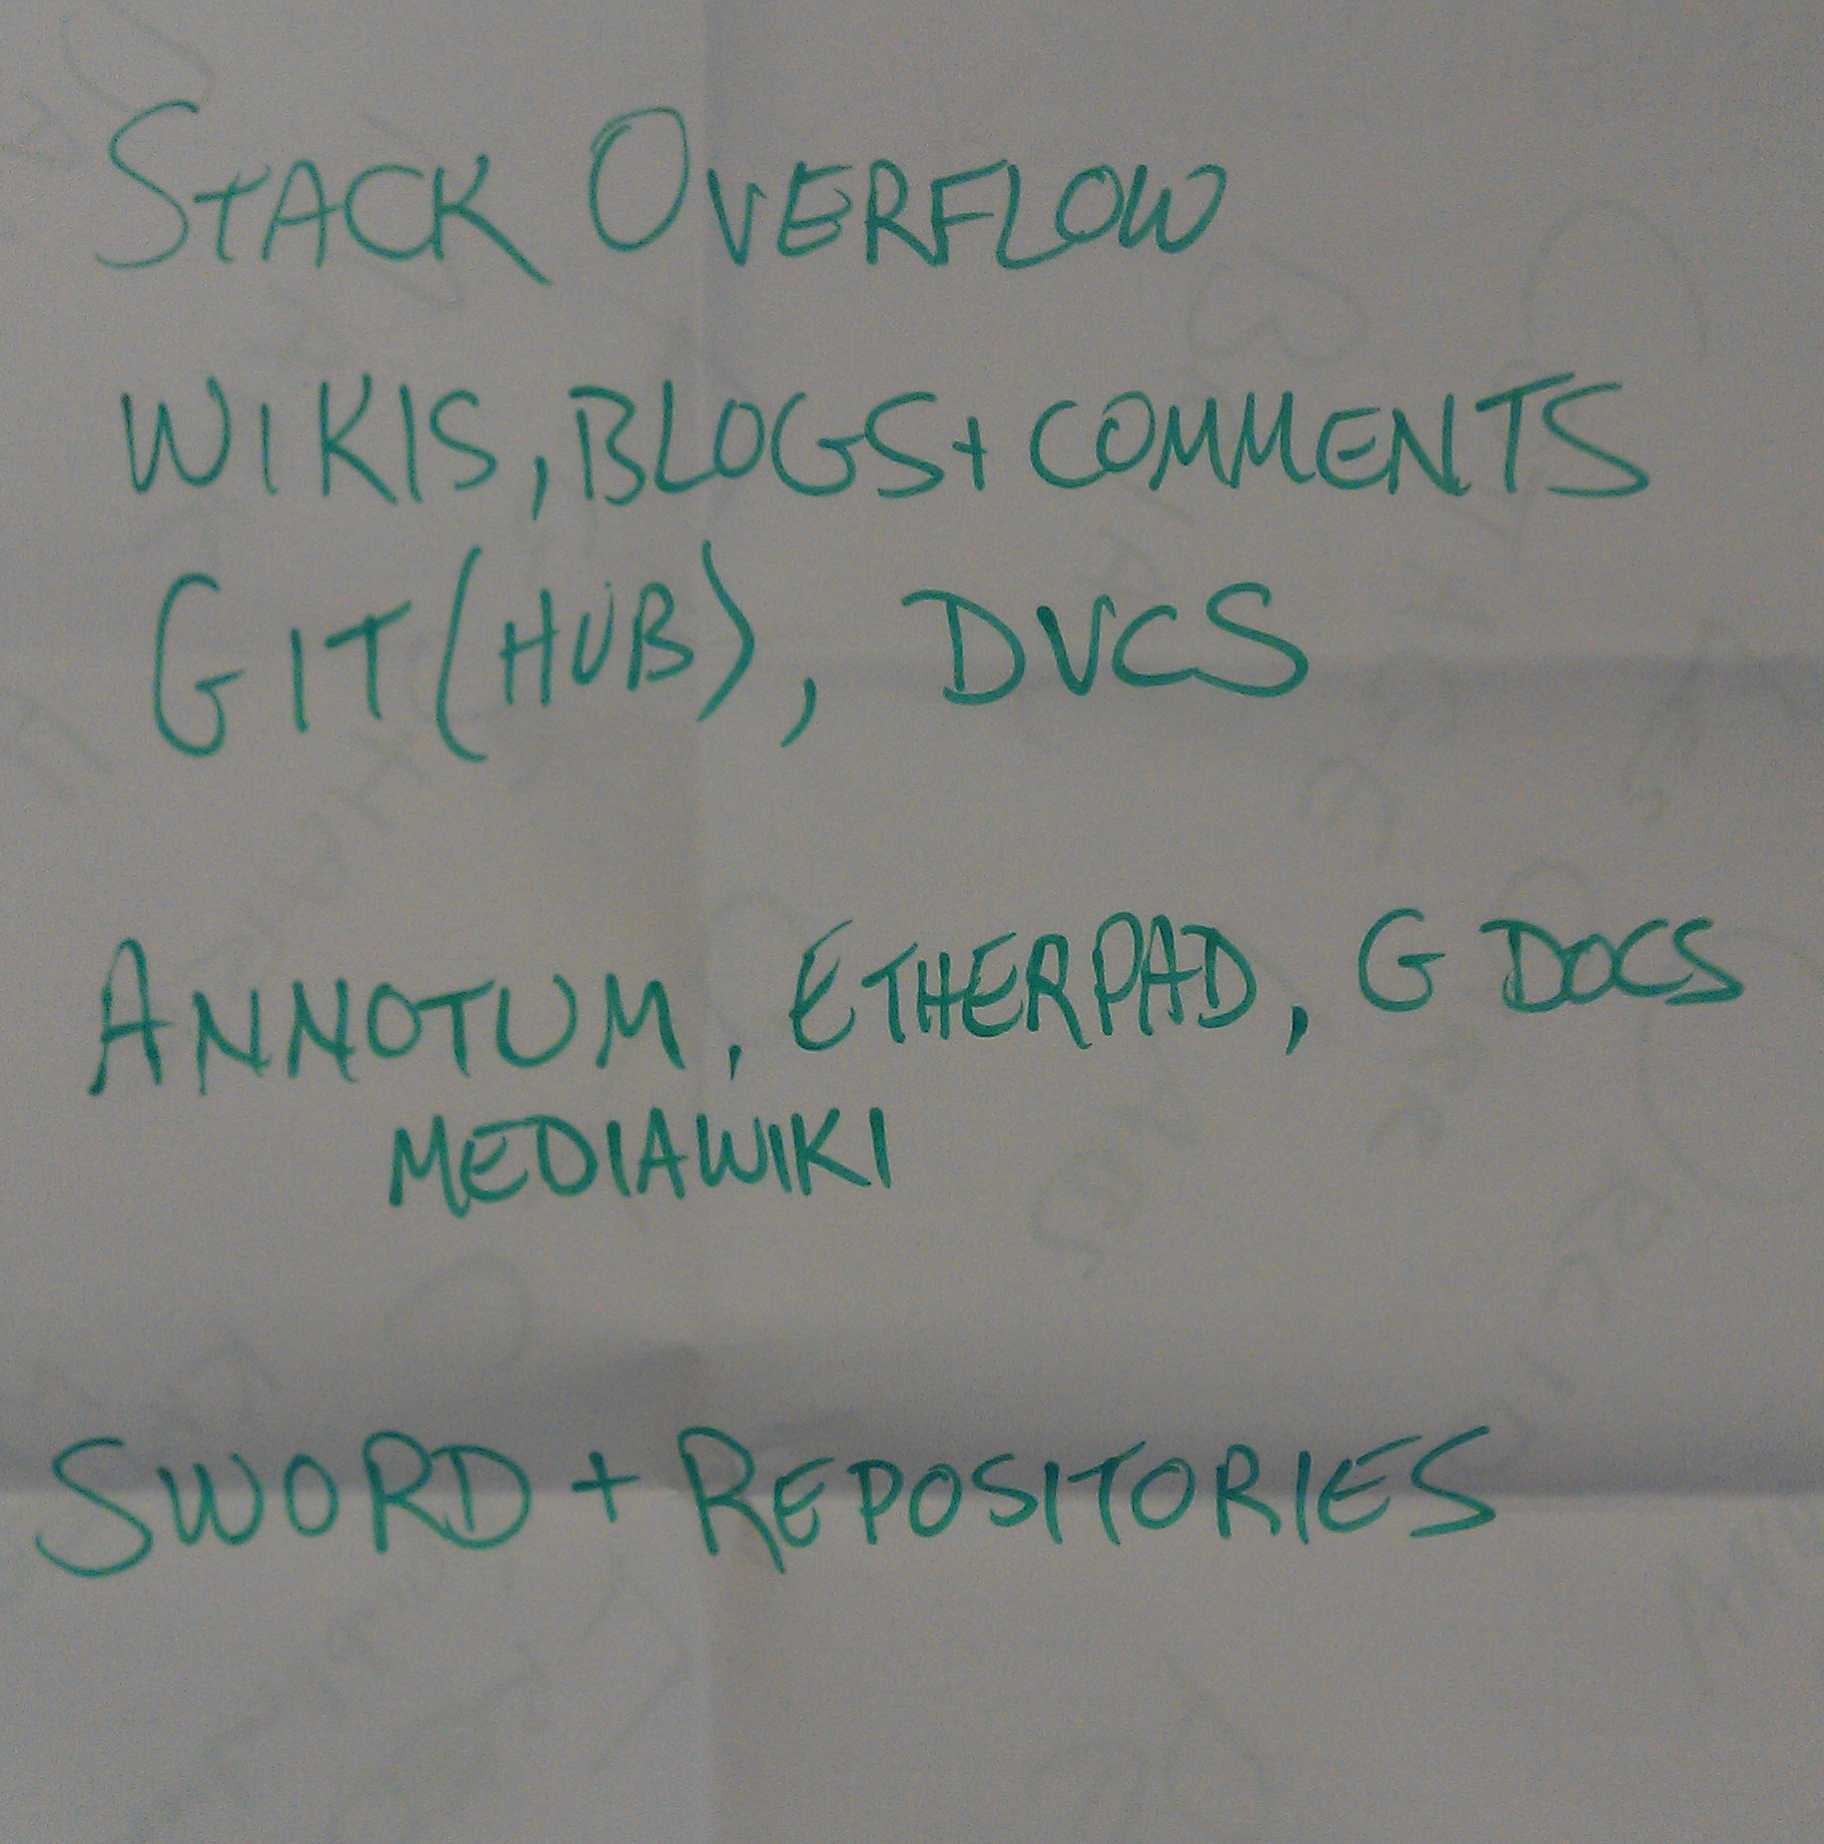 STACK OVERFLOW
WIKIS, BLOGS + COMMENTS
GIT(HUB), DVCS
ANNOTUM, ETHERPAD, G DOCS
MEDIAWIKI
SWORD + REPOSITORIES